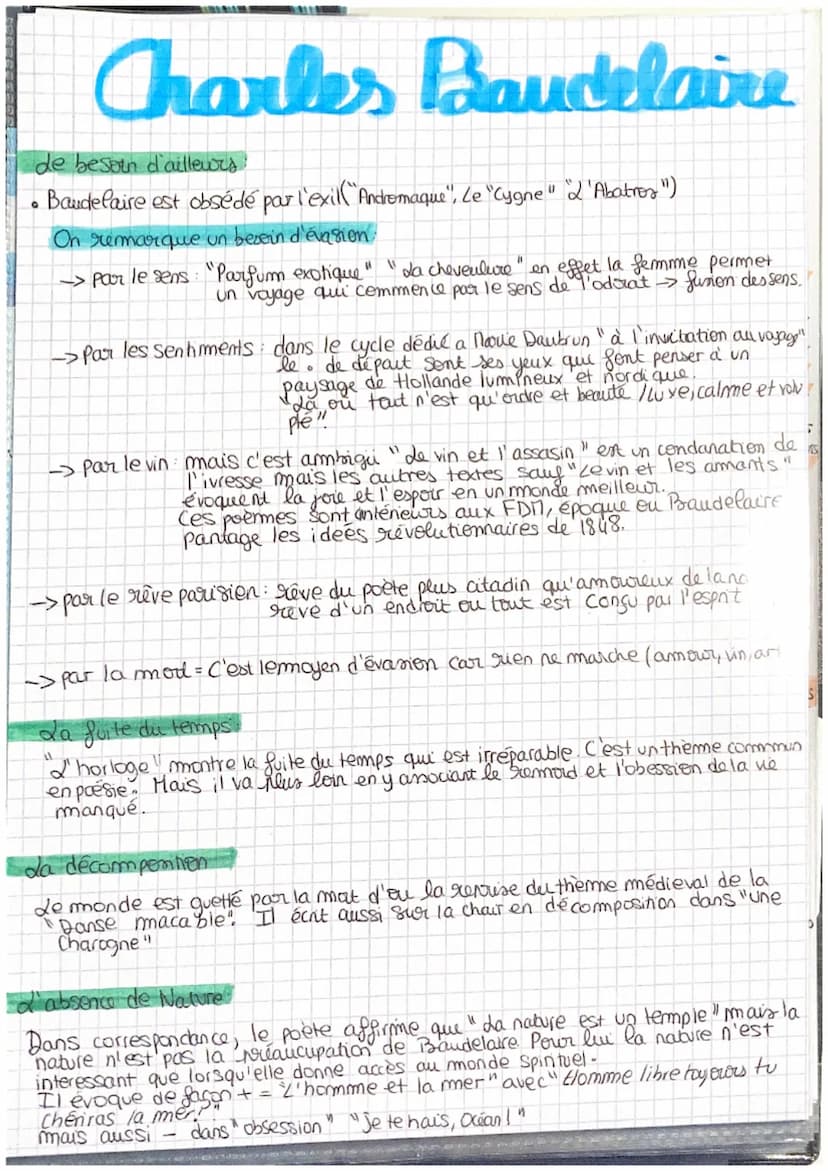 Charles Baudelaire
Le besoin d'ailleurs:
• Baudelaire est obsédé par l'exil ("Andromaque", Le "Cygne" "L'Abatros")
On remarque un besoin d'évasion:
-> par le sens : "Parfum exotique" "La cheveulure" en effet la femme permet
un voyage qui commence par le sens de l'odorat -> fusion des sens.
-> Par les sentiments : dans le cycle dédié a Marie Daubrun "à l'invitation au voyage"
le • de départ sont ses yeux qui font penser à un
paysage de Hollande lumineux et nordique.
"Là où tout n'est qu'ordre et beauté / luxe, calme et volu
pté".
-> Par le vin : mais c'est ambigü "Le vin et l'assasin" est un condanation de
l'ivresse mais les autres textes sauf "Le vin et les amants"
évoquent la joie et l'espoir en un monde meilleur.
Ces poèmes sont antérieurs aux FDM, époque ou Baudelaire
partage les ideés révolutionnaires de 1848.
-> par le rêve parisien : rêve du poète plus citadin qu'amoureux de la na
rêve d'un endroit ou tout est conçu par l'esprit
-> par la mort = C'est le moyen d'évasion car rien ne marche (amour, vin, art
La fuite du temps:
"L'horloge" montre la fuite du temps qui est irréparable. C'est un thème commun
en poésie. Mais il va plus loin en y associant le remord et l'obession de la vie
manqué.
La décomposition
Le monde est guetté par la mort d'ou la reprise du thème médieval de la
"Danse macable". Il écrit aussi sur la chair en décomposition dans "une
Charogne"
L'absence de Nature:
Dans correspondance, le poète affirme que "La nature est un temple" mais la
nature n'est pas la préaucupation de Baudelaire Pour lui la nature n'est
interessant que lorsqu'elle donne accès au monde spirituel.
Il évoque de façon + = "L'homme et la mer" avec "Homme libre toujours tu
chériras la mer!"
mais aussi - dans "obsession" "je te hais, Océan!"